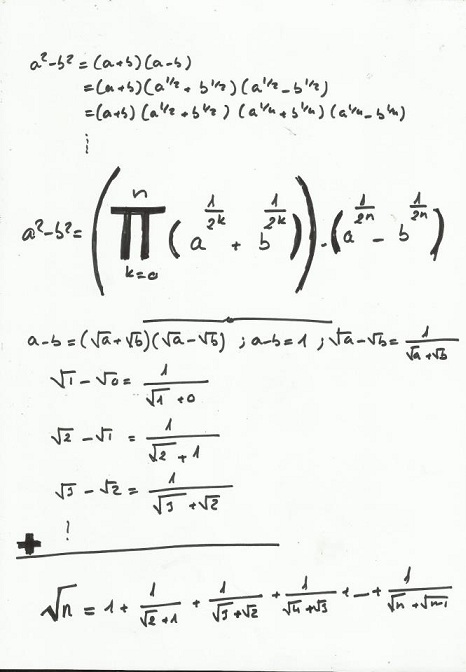 a²-b² = (a+b)(a-b)
=(a+b)(a^1/2 + b^1/2)(a^1/2 - b^1/2)
=(a+b)(a^1/2 + b^1/2)(a^1/4 + b^1/4)(a^1/4 - b^1/4)
⋮
a²-b² = (∏_{k=0}^{n} (a^{1/2^k} + b^{1/2^k})) · (a^{1/2^n} - b^{1/2^n})
a-b = (√a+√b)(√a-√b) ; a-b=1 ; √a-√b = 1/(√a+√b)
√1 - √0 = 1/(√1+0)
√2 - √1 = 1/(√2+1)
√3 - √2 = 1/(√3+√2)
⋮
+
√n = 1 + 1/(√2+1) + 1/(√3+√2) + 1/(√4+√3) + ... + 1/(√n+√n-1)